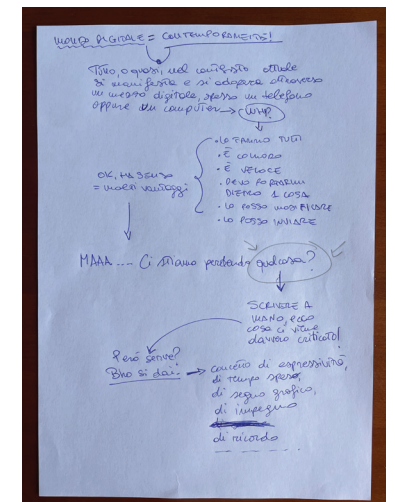 MONDO DIGITALE = CONTEMPORANEITÀ!
Tutto, o quasi, nel contesto attuale
si manifesta e si adopera attraverso
un mezzo digitale, spesso un telefono
oppure un computer → WHY?
• LO FANNO TUTTI
• È COMODO
• È VELOCE
• DEVO PORTARMI
DIETRO 1 COSA
• LO POSSO MODIFICARE
• LO POSSO INVIARE
OK, HA SENSO
= molti vantaggi
MAAA .... Ci stiamo perdendo qualcosa?
SCRIVERE A
MANO, ecco
cosa ci viene
davvero criticato!
Però serve?
Bho si dai. → concetto di espressività,
di tempo speso,
di segno grafico,
di impegno
di ricordo